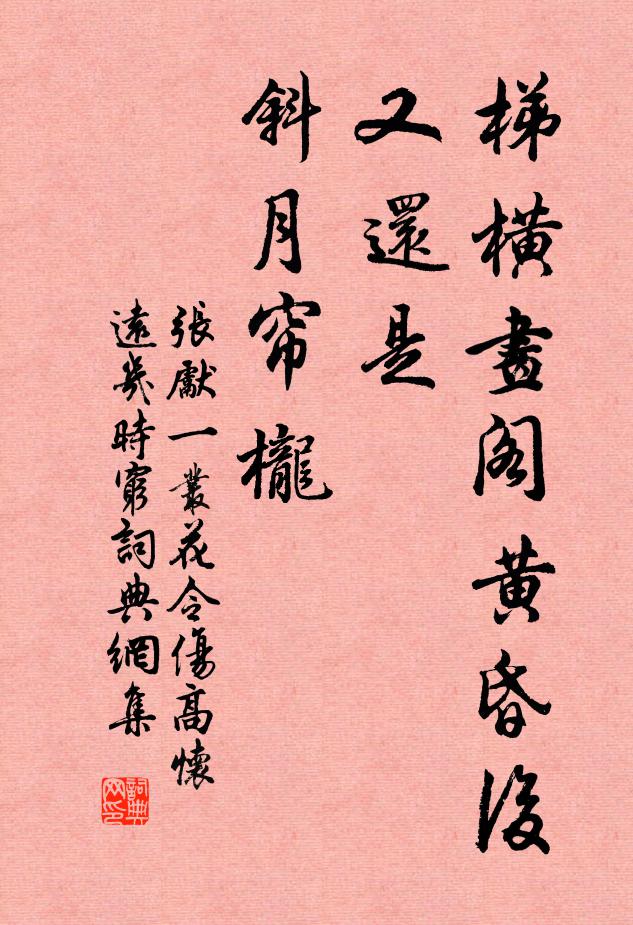 梯橫畫閣黄昏後
又還是
斜月帘櫳
張獻一叢花令傷高懷
遠幾時窮詞典網集
詞典
网印